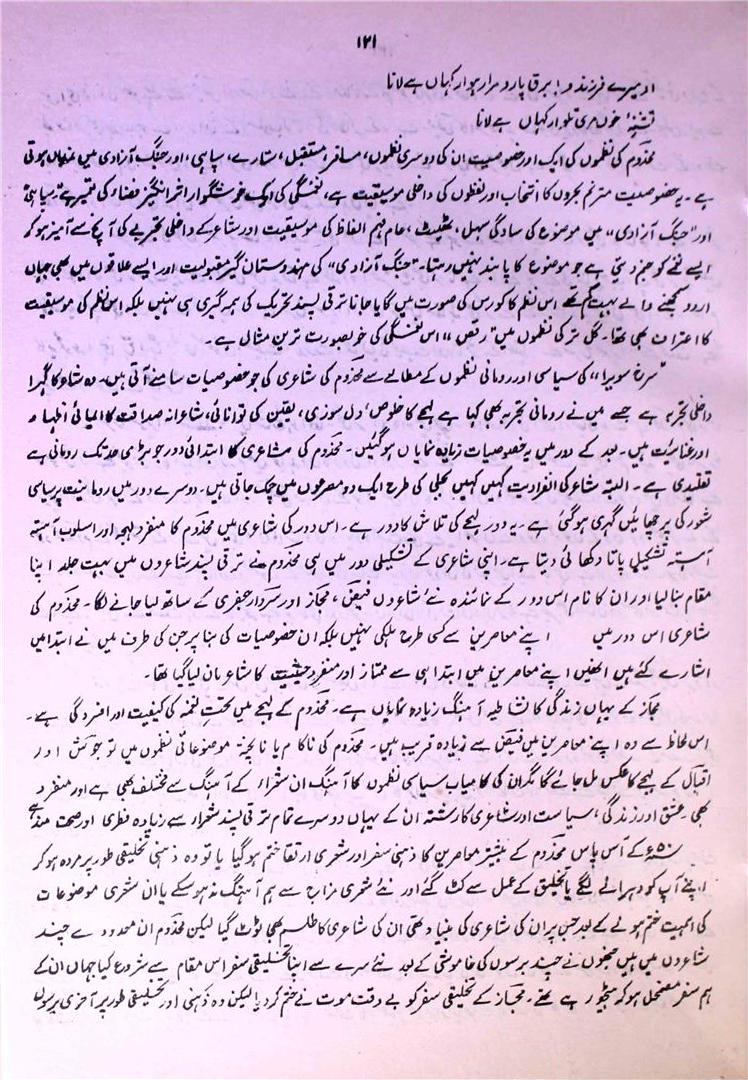 ۱۲۱
او میرے فرزندو! برق پا رو مرا رہوار کہاں ہے لانا
تشنۂ خوں مری تلوار کہاں ہے لانا
مخدوم کی نظموں کی ایک اور خصوصیت ان کی دوسری نظموں، مسافر، مستقبل، ستارے، سپاہی، اور جنگ آزادی میں نمایاں ہوتی
ہے۔ یہ خصوصیت مترنم بحروں کا انتخاب اور لفظوں کی داخلی موسیقیت ہے، نغمگی کی ایک خوشگوار اثر انگیز فضاء کی تعمیر ہے۔ سپاہی
اور "جنگ آزادی" میں موضوع کی سادگی سہل، عام فہم الفاظ کی موسیقیت اور شاعر کے داخلی تجربے کی آنچ سے آمیز ہو کر
ایسے نغمے کو جنم دیتی ہے جو موضوع کا پابند نہیں رہتا۔ "جنگ آزادی" کی ہندوستان گیر مقبولیت اور ایسے علاقوں میں بھی جہاں
اردو سمجھنے والے بہت کم تھے اس نظم کا کورس کی صورت میں گایا جانا ترقی پسند تحریک کی ہمہ گیری ہی نہیں بلکہ اس نظم کی موسیقیت
کا اعتراف بھی تھا۔ گل تر کی نظموں میں "رقص" اس نغمگی کی خوبصورت ترین مثال ہے۔
"سرخ سویرا" کی سیاسی اور رومانی نظموں کے مطالعے سے مخدوم کی شاعری کی جو خصوصیات سامنے آتی ہیں۔ وہ شاعر کا گہرا
داخلی تجربہ ہے جسے میں نے رومانی تجربہ بھی کہا ہے لہجے کا خلوص، دل سوزی، یقین کی توانائی، شاعرانہ صداقت کا ایمائی اظہار
اور غنائیت ہیں۔ بعد کے دور میں یہ خصوصیات زیادہ نمایاں ہو گئیں۔ مخدوم کی شاعری کا ابتدائی دور جو بڑی حد تک رومانی ہے
تقلیدی ہے۔ البتہ شاعر کی انفرادیت کہیں کہیں بجلی کی طرح ایک دو مصرعوں میں چمک جاتی ہیں۔ دوسرے دور میں رومانیت پر سیاسی
شعور کی پرچھائیں گہری ہو گئی ہے۔ یہ دور لہجے کی تلاش کا دور ہے۔ اس دور کی شاعری میں مخدوم کا منفرد لہجہ اور اسلوب آہستہ
آہستہ تشکیل پاتا دکھائی دیتا ہے۔ اپنی شاعری کے تشکیلی دور میں ہی مخدوم نے ترقی پسند شاعروں میں بہت جلد اپنا
مقام بنا لیا اور ان کا نام اس دور کے نمائندہ نئے شاعروں فیض، مجاز اور سردار جعفری کے ساتھ لیا جانے لگا۔ مخدوم کی
شاعری اس دور میں اپنے معاصرین سے کسی طرح ہلکی نہیں بلکہ ان خصوصیات کی بنا پر جن کی طرف میں نے ابتدا میں
اشارے کئے ہیں انھیں اپنے معاصرین میں ابتدا ہی سے ممتاز اور منفرد حیثیت کا شاعر مان لیا گیا تھا۔
مجاز کے یہاں زندگی کا نشاطیہ آہنگ زیادہ نمایاں ہے۔ مخدوم کے لہجے میں تحت نغمہ کی کیفیت اور افسردگی ہے۔
اس لحاظ سے وہ اپنے معاصرین میں فیض سے زیادہ قریب ہیں۔ مخدوم کی ناکام یا ناپختہ موضوعاتی نظموں میں تو جوش اور
اقبال کے لہجے کا عکس مل جائے گا مگر ان کی کامیاب سیاسی نظموں کا آہنگ ان شعراء کے آہنگ سے مختلف بھی ہے اور منفرد
بھی۔ عشق اور زندگی، سیاست اور شاعری کا رشتہ ان کے یہاں دوسرے تمام ترقی پسند شعراء سے زیادہ فطری اور صحت مند ہے
۵۰ء کے آس پاس مخدوم کے بیشتر معاصرین کا ذہنی سفر اور شعری ارتقا ختم ہو گیا یا تو وہ ذہنی تخلیقی طور پر مردہ ہو کر
اپنے آپ کو دہرانے لگے یا تخلیق کے عمل سے کٹ گئے اور نئے شعری مزاج سے ہم آہنگ نہ ہو سکے یا ان شعری موضوعات
کی اہمیت ختم ہونے کے بعد جس پر ان کی شاعری کی بنیاد تھی ان کی شاعری کا طلسم بھی ٹوٹ گیا لیکن مخدوم ان معدودے چند
شاعروں میں ہیں جنھوں نے چند برسوں کی خاموشی کے بعد نئے سرے سے اپنا تخلیقی سفر اس مقام سے شروع کیا جہاں ان کے
ہم سفر مضمحل ہو کر بیٹھ رہے تھے۔ مجاز کے تخلیقی سفر کو بے وقت موت نے ختم کر دیا لیکن وہ ذہنی اور تخلیقی طور پر آخری برسوں